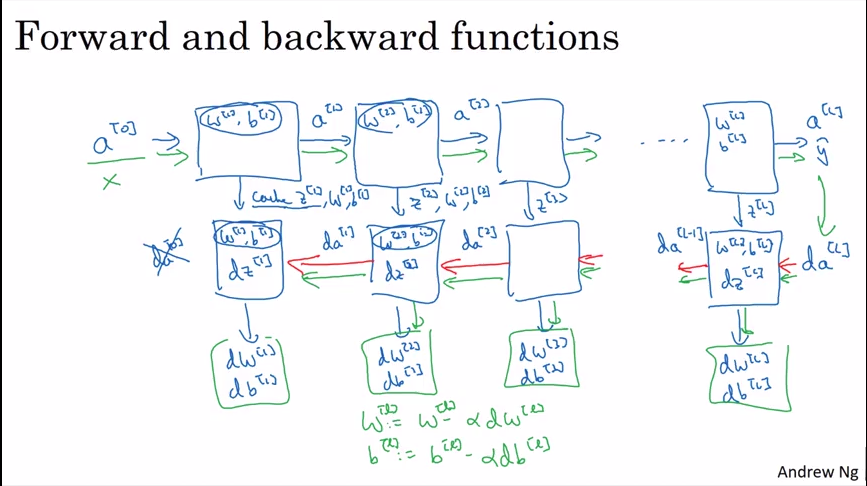 Forward and backward functions
a^[0] w^[1], b^[1] a^[1] w^[2], b^[2] a^[2] .... w^[L] b^[L] a^[L]
x ŷ
cache z^[1], w^[1], b^[1] z^[2], w^[2], b^[2] z^[3] z^[L]
da^[0] w^[1], b^[1] da^[1] w^[2], b^[2] da^[2] da^[L-1] w^[L], b^[L] da^[L]
dz^[1] dz^[2] dz^[L]
dw^[1] dw^[2] dw^[3] dw^[L]
db^[1] db^[L]
w^[l] := w^[l] - αdw^[l]
b^[l] := b^[l] - αdb^[l]
Andrew Ng